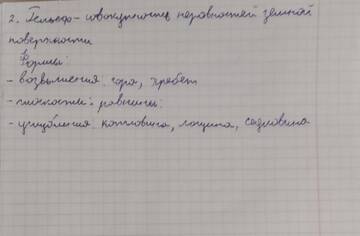 2. Рельеф - совокупность неровностей земной
поверхности
Формы:
- возвышения: гора, хребет
- плоскости: равнины
- углубления: котловина, лощина, седловина